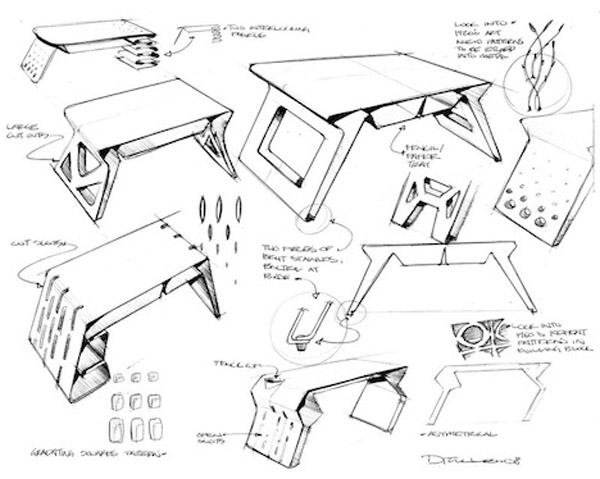 TWO INTERLOCKING
PIECES
LOOK INTO
1920'S ART
PATTERNS
TO BE
INTO METAL
LARGE
CUT OUTS
PENCIL/
PAPER
TRAY
CUT SLOTS
TWO PIECES OF
BENT STAINLESS,
BOLTED AT
BASE
LOOK INTO
1960'S
PATTERNS IN
BUILDING BLOCK
OPEN
SLOTS
ASYMETRICAL
GRADATING SQUARES PATTERN